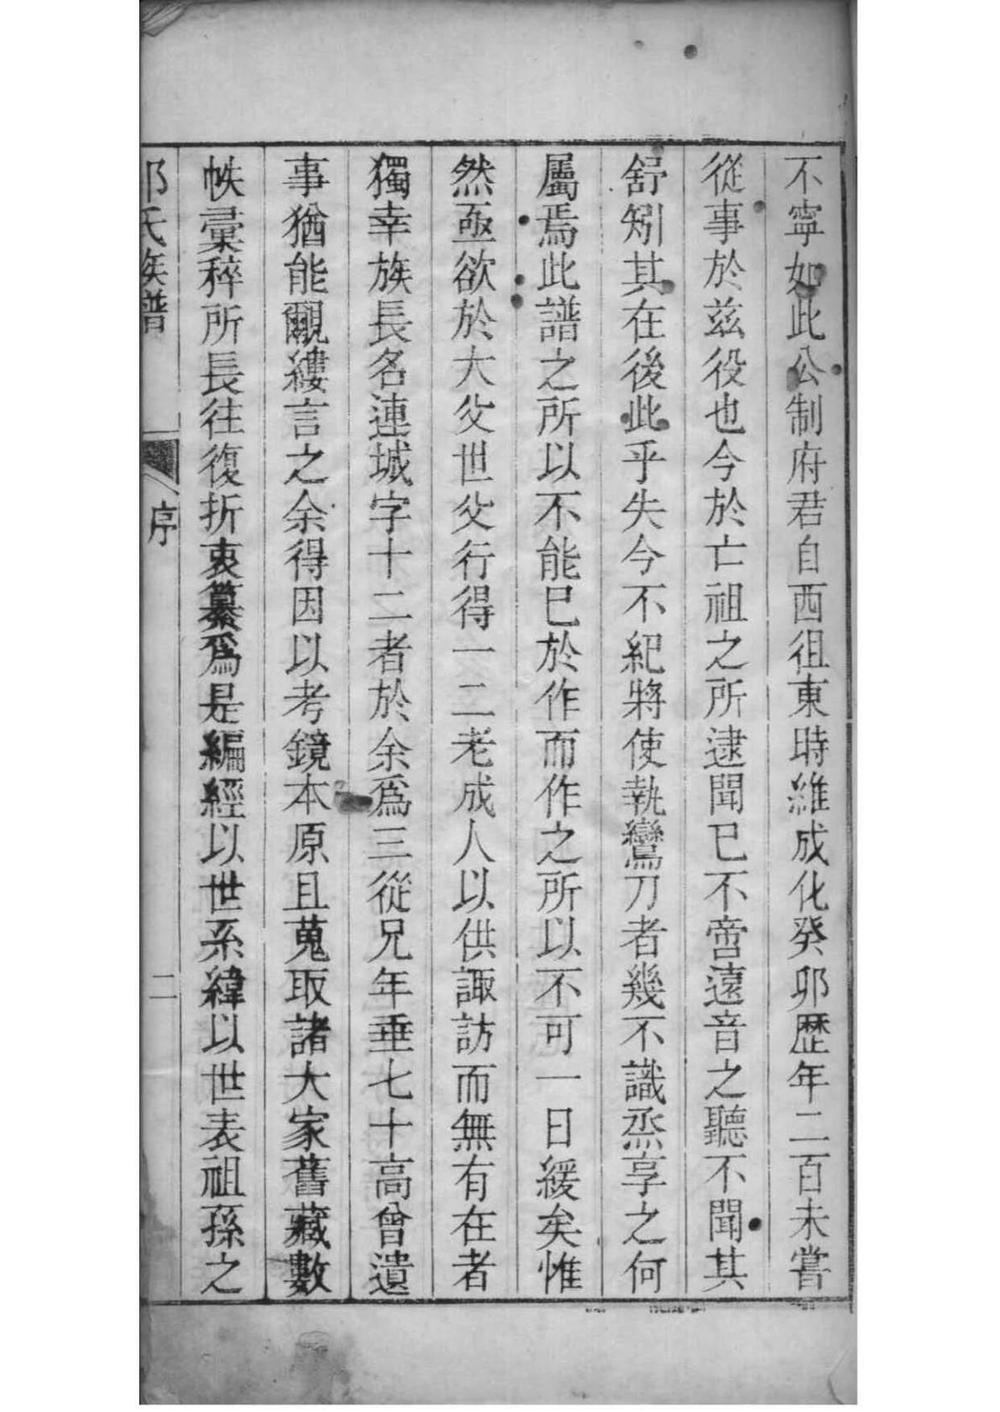 不寧如此公制府君自西徂東時維成化癸卯歷年二百未嘗
從事於茲役也今於亡祖之所逮聞已不啻遠音之聽不聞其
舒矧其在後此乎失今不紀將使執鸞刀者幾不識烝享之何
屬焉此譜之所以不能已於作而作之所以不可一日緩矣惟
然亟欲於大父世父行得一二老成人以供諏訪而無有在者
獨幸族長名連城字十二者於余爲三從兄年垂七十高曾遺
事猶能覼縷言之余得因以考鏡本原且蒐取諸大家舊藏數
帙彙稡所長往復折衷纂爲是編經以世系緯以世表祖孫之
氏族譜
序
二